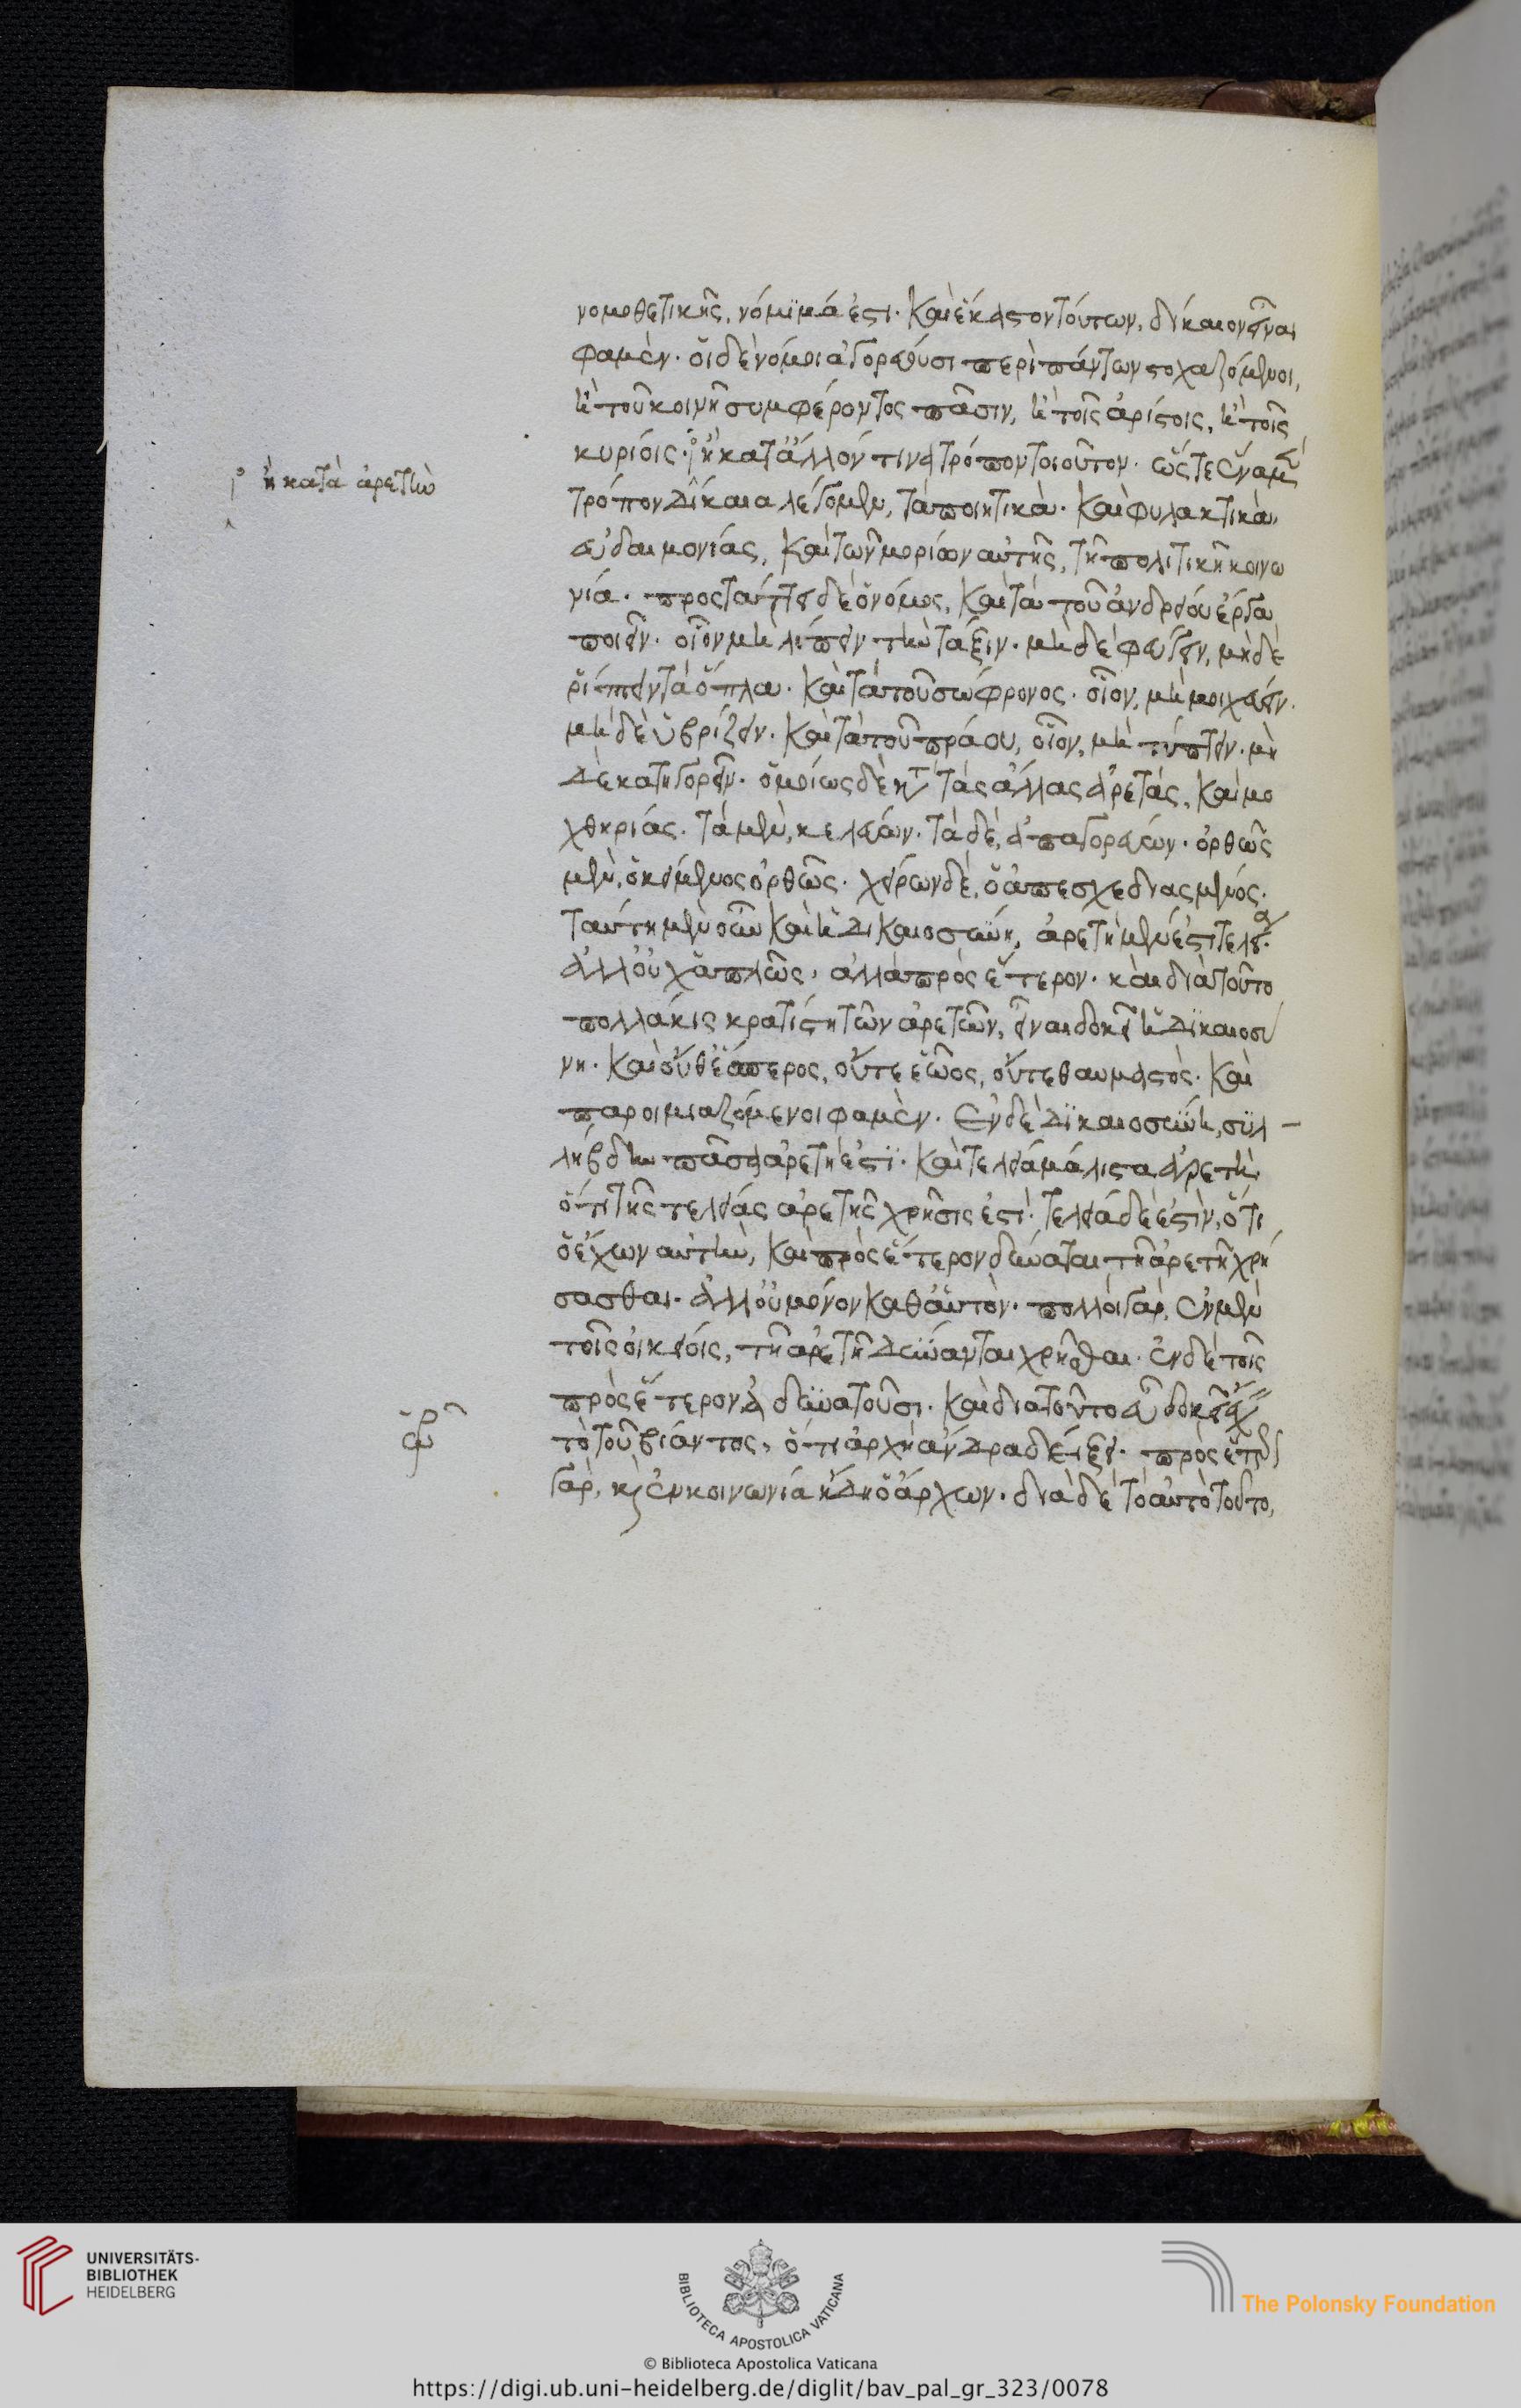 νομοθετικῆς, νόμιμά ἐστι. καὶ ἕκαστον τούτων, δίκαιον εἶναι
φαμὲν. οἱ δὲ νόμοι ἀγορεύουσι περὶ πάντων στοχαζόμενοι,
ἢ τοῦ κοινῇ συμφέροντος πᾶσιν, ἢ τοῖς ἀρίστοις, ἢ τοῖς
κυρίοις. ἢ κατ' ἄλλόν τινα τρόπον τοιοῦτον. ὥστε ἕνα μὲν
ἢ κατὰ ἀρετὴν
τρόπον δίκαια λέγομεν, τὰ ποιητικὰ. καὶ φυλακτικὰ,
εὐδαιμονίας, καὶ τῶν μορίων αὐτῆς, τῇ πολιτικῇ κοινω
νίᾳ. προστάττει δὲ ὁ νόμος, καὶ τὰ τοῦ ἀνδρείου ἔργα
ποιεῖν. οἷον μὴ λείπειν τὴν τάξιν. μὴ δὲ φεύγειν, μὴ δὲ
ῥίπτειν τὰ ὅπλα. καὶ τὰ τοῦ σώφρονος. οἷον, μὴ μοιχεύειν.
μὴ δὲ ὑβρίζειν. καὶ τὰ τοῦ πράου, οἷον, μὴ τύπτειν. μὴ
δὲ κατηγορεῖν. ὁμοίως δὲ κατὰ τὰς ἄλλας ἀρετάς, καὶ μο
χθηρίας. τὰ μὲν, κελεύων. τὰ δὲ, ἀπαγορεύων. ὀρθῶς
μὲν, ὁ κείμενος ὀρθῶς. χείρων δὲ, ὁ ἀπεσχεδιασμένος.
ταύτη μὲν οὖν καὶ ἡ δικαιοσύνη, ἀρετὴ μέν ἐστι τελεία.
ἀλλ' οὐχ ἁπλῶς, ἀλλὰ πρὸς ἕτερον. καὶ διὰ τοῦτο
πολλάκις κρατίστη τῶν ἀρετῶν, εἶναι δοκεῖ ἡ δικαιοσύ
νη. καὶ οὔθ' ἕσπερος, οὔτε ἑῶος, οὕτε θαυμαστὸς. καὶ
παροιμιαζόμενοι φαμὲν. ἐν δὲ δικαιοσύνῃ, συλ-
λήβδην πᾶσα ἀρετή ἐστι. καὶ τελεία μάλιστα ἀρετὴ,
ὅτι τῆς τελείας ἀρετῆς χρῆσις ἐστὶ. τελεία δὲ ἐστὶν, ὅτι
ὁ ἔχων αὐτὴν, καὶ πρὸς ἕτερον δύναται τῇ ἀρετῇ χρή
σασθαι. ἀλλ' οὐ μόνον καθ' αὑτὸν. πολλοὶ γὰρ, ἐν μὲν
τοῖς οἰκείοις, τῇ ἀρετῇ δύνανται χρῆσθαι. ἐν δὲ τοῖς
πρὸς ἕτερον, ἀδυνατοῦσι. καὶ διὰ τοῦτο εὖ δοκεῖ ἔχειν
τὸ τοῦ βίαντος, ὅτι ἀρχὴ ἄνδρα δείξει. πρὸς ἕτερον
γὰρ, καὶ ἐν κοινωνίᾳ ἤδη ὁ ἄρχων. διὰ δὲ τὸ αὐτὸ τοῦτο,
UNIVERSITÄTS-
BIBLIOTHEK
HEIDELBERG
BIBLIOTECA APOSTOLICA VATICANA
The Polonsky Foundation
© Biblioteca Apostolica Vaticana
https://digi.ub.uni-heidelberg.de/diglit/bav_pal_gr_323/0078